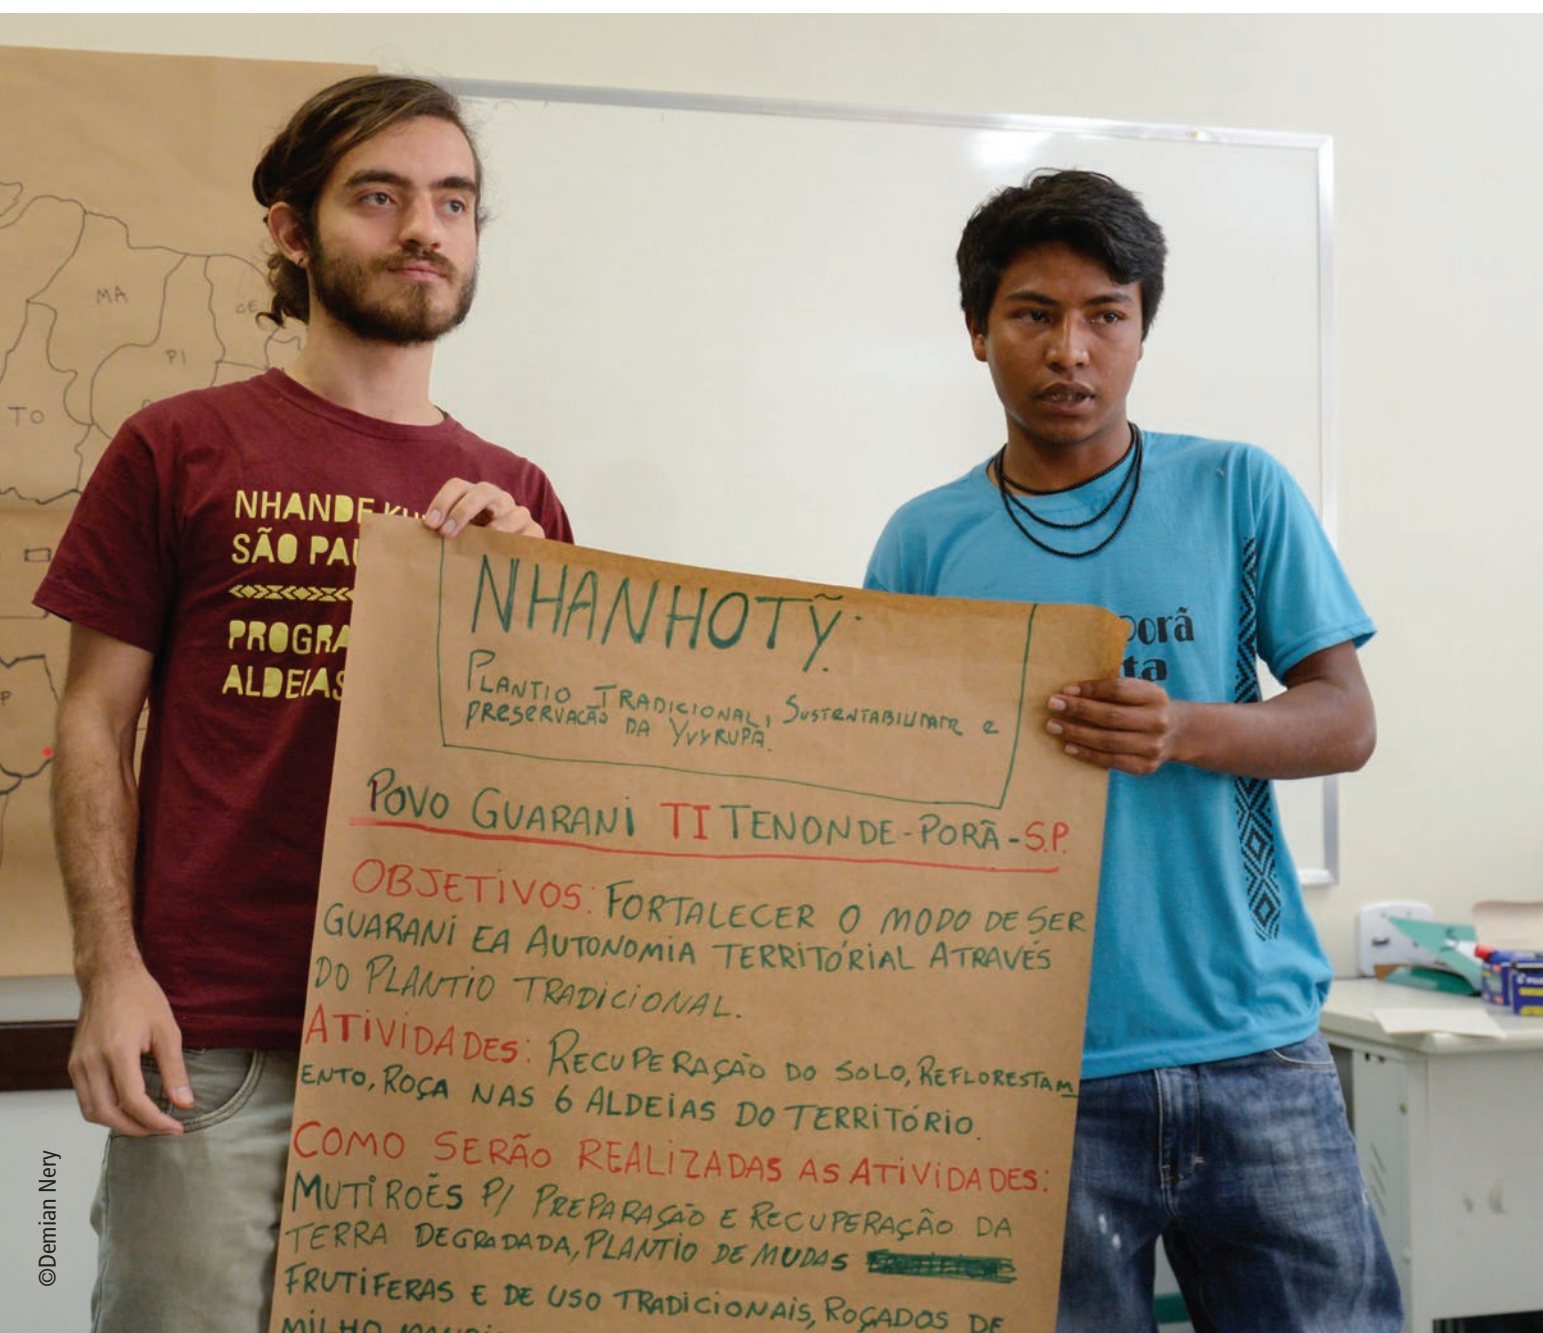 MA
CE
PI
TO
NHANDE
SÃO
ALDEIAS
orã
ta
NHANHOTỸ.
PLANTIO TRADICIONAL, SUSTENTABILIDADE e
PRESERVAÇÃO DA YVYRUPA.
POVO GUARANI TI TENONDE-PORÃ-S.P.
OBJETIVOS: FORTALECER O MODO DE SER
GUARANI E A AUTONOMIA TERRITÓRIAL ATRAVÉS
DO PLANTIO TRADICIONAL.
ATIVIDADES: RECUPERAÇÃO DO SOLO, REFLORESTAM
ENTO, ROÇA NAS 6 ALDEIAS DO TERRITÓRIO.
COMO SERÃO REALIZADAS AS ATIVIDADES:
MUTIROẼS P/ PREPARAÇÃO E RECUPERAÇÃO DA
TERRA DEGRADADA, PLANTIO DE MUDAS
FRUTIFERAS E DE USO TRADICIONAIS, ROÇADOS DE
MILHO
©Demian Nery